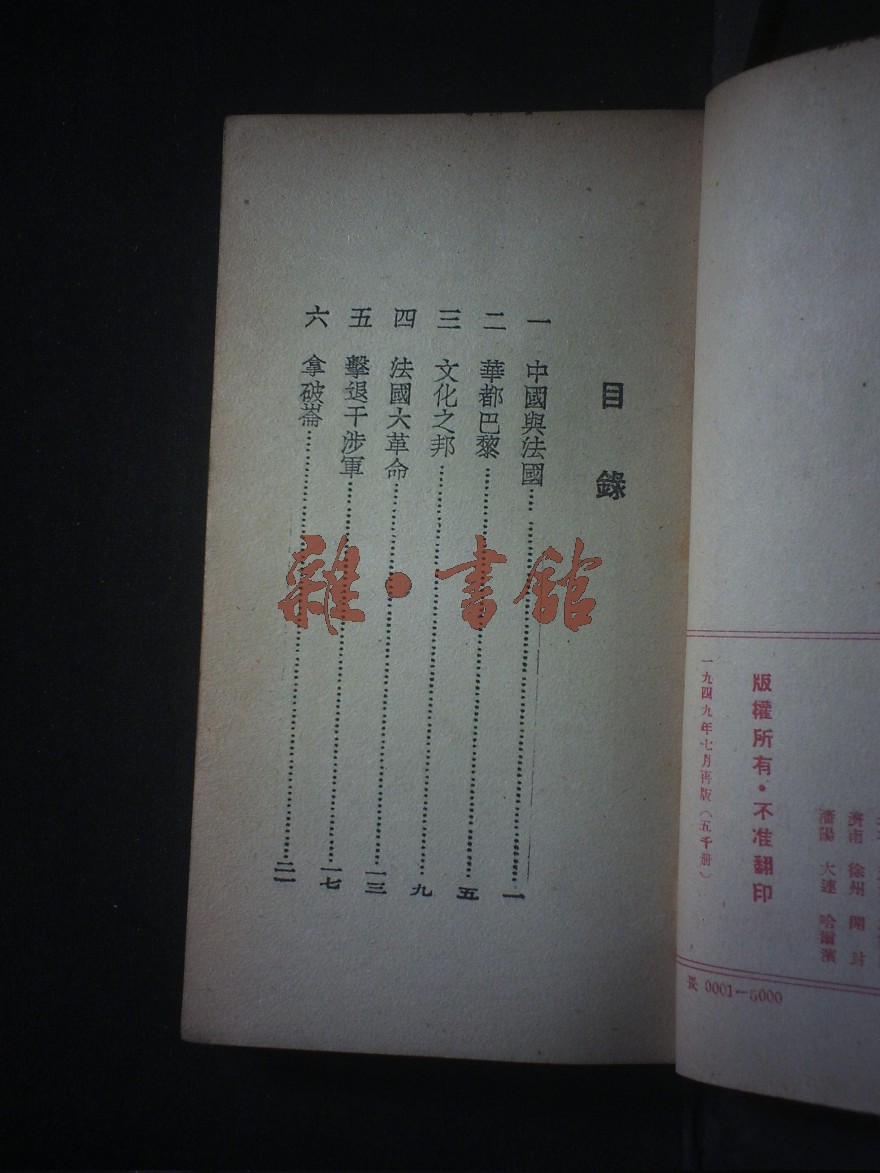 目錄
一 中國與法國……一
二 華都巴黎……五
三 文化之邦……九
四 法國大革命……一三
五 擊退干涉軍……一七
六 拿破崙……二一
雜·書館
濟南 徐州 開封
瀋陽 大連 哈爾濱
版權所有·不准翻印
一九四九年七月再版(五千册)
長 0001—5000